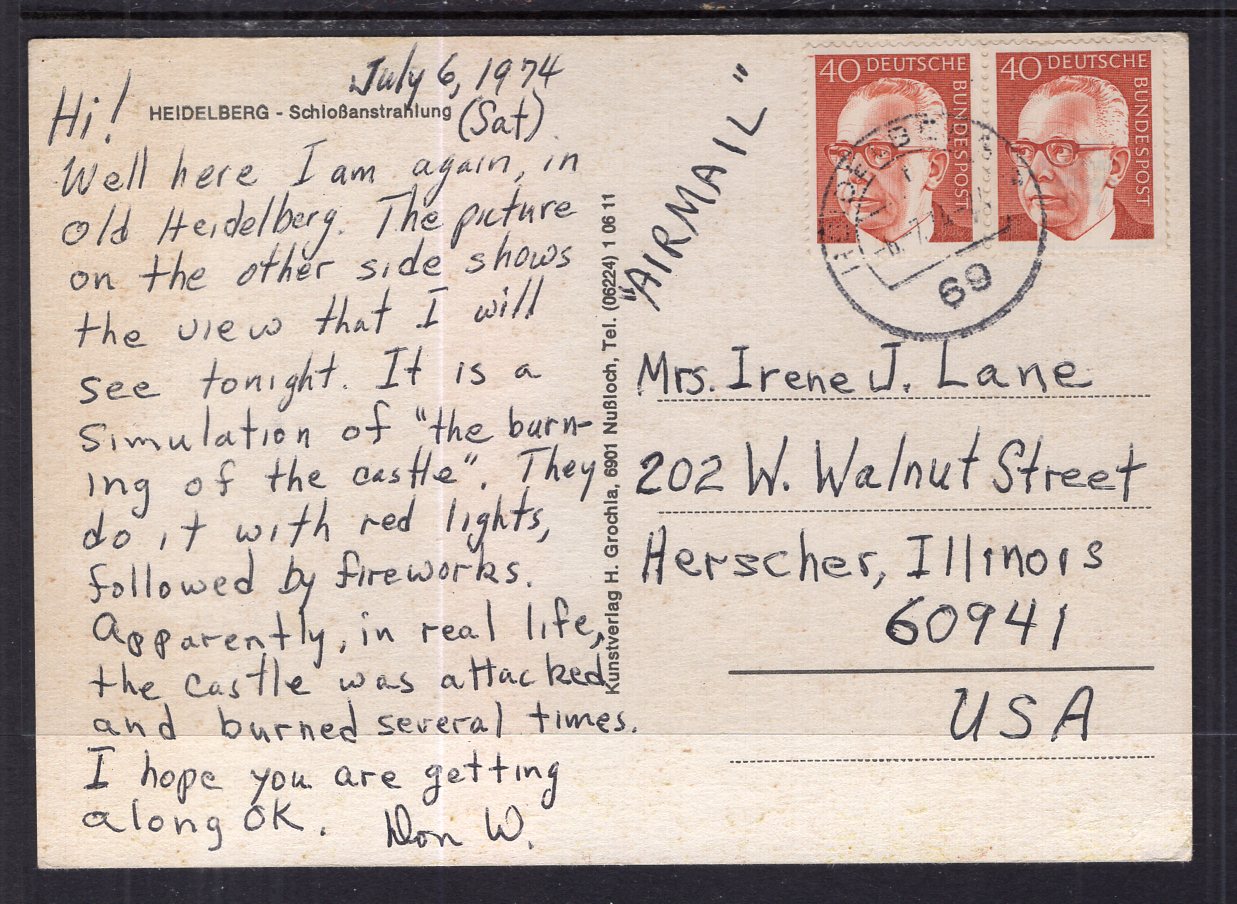 July 6, 1974
Hi!
HEIDELBERG - Schloßanstrahlung
(Sat).
Well here I am again, in
old Heidelberg. The picture
on the other side shows
the view that I will
see tonight. It is a
simulation of "the burn-
ing of the castle". They
do it with red lights,
followed by fireworks.
Apparently, in real life,
the castle was attacked
and burned several times.
I hope you are getting
along OK.
Don W.
Kunstverlag H. Grochla, 6901 Nußloch, Tel. (06224) 1 06 11
"AIRMAIL"
40 DEUTSCHE BUNDESPOST
40 DEUTSCHE BUNDESPOST
69
Mrs. Irene J. Lane
202 W. Walnut Street
Herscher, Illinois
60941
USA